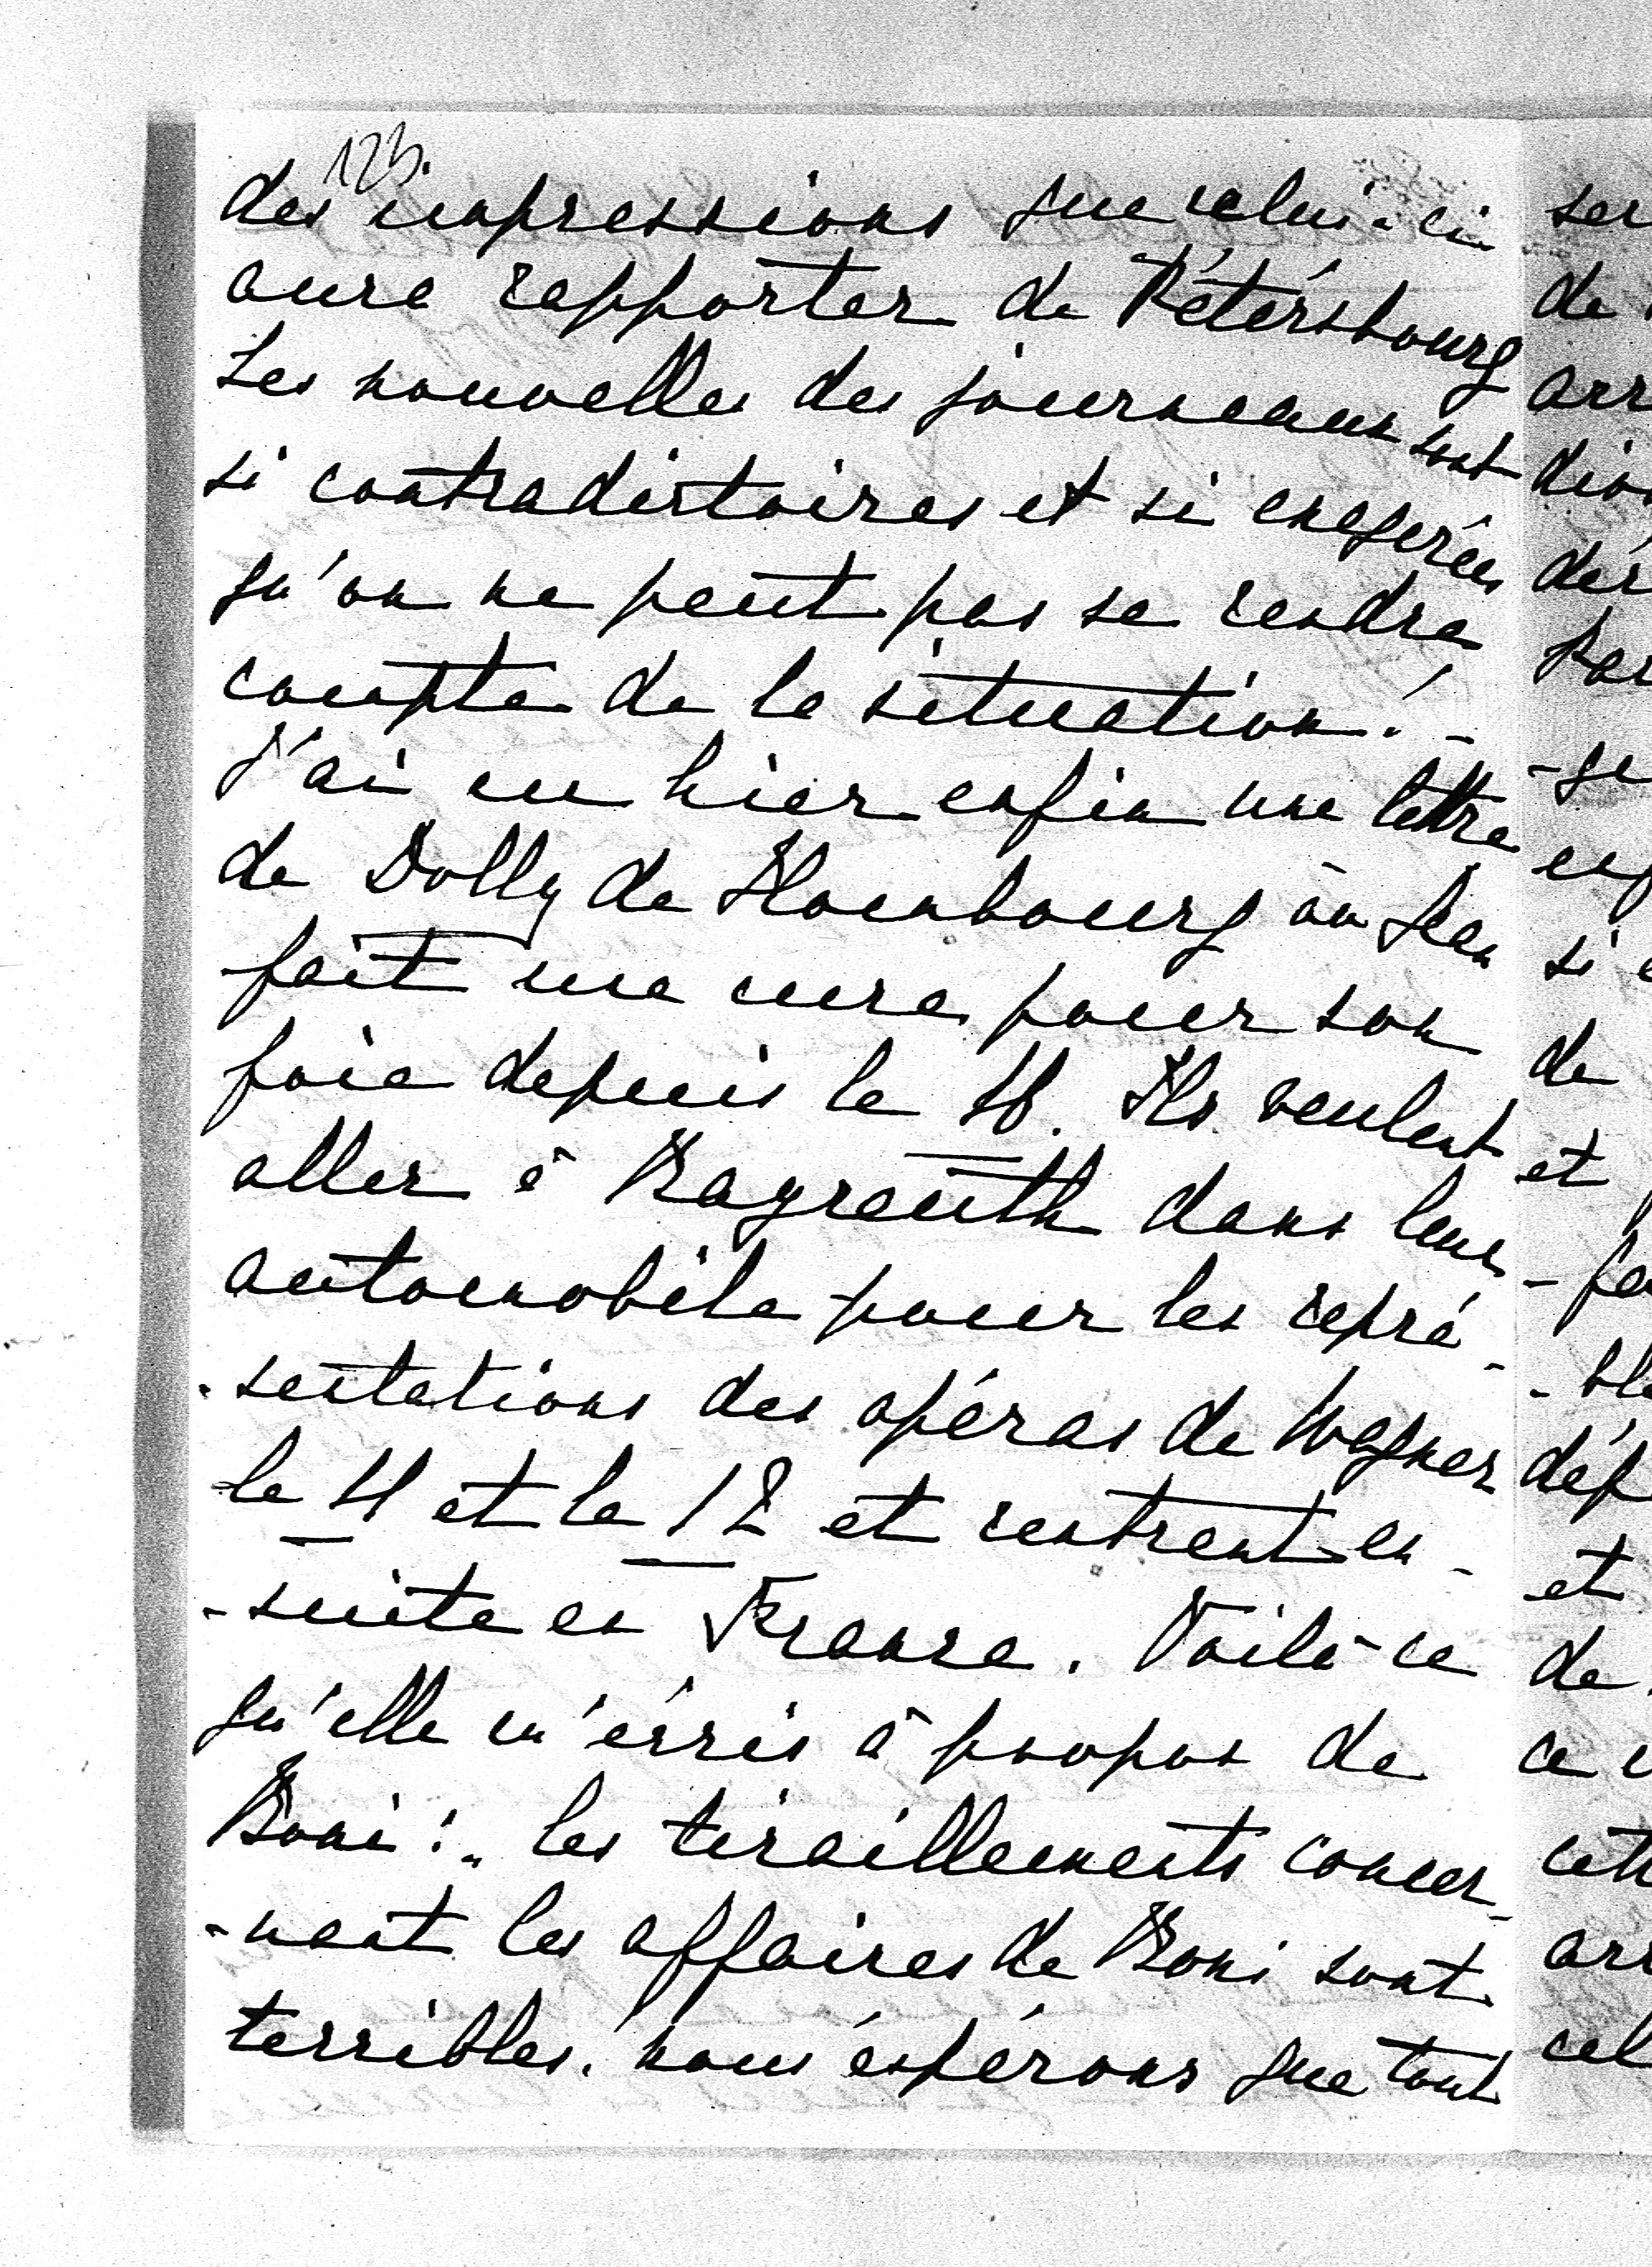 123.
des impressions que celui-ci
aura rapporter de Pétersbourg
Les nouvelles des journeaux sont
si contradictoires et si exagerées
qu'on ne peut pas se rendre
compte de la situation. -
J'ai eu hier enfin une lettre
de Dolly de Hombourg où Jean
fait une cure pour son
foie depuis le 18. Ils veulent
aller à Bayreuth dans leur
automobile pour les repré-
-sentations des opéras de Wagner
le 11 et le 12 et rentrent en-
-suite en France. Voilà ce
qu'elle m'écris à propos de
Boni: „ les tiraillements concer-
-nant les affaires de Boni sont
terribles. nous éspérons que tout
ser
de
arr
et
de
et
de